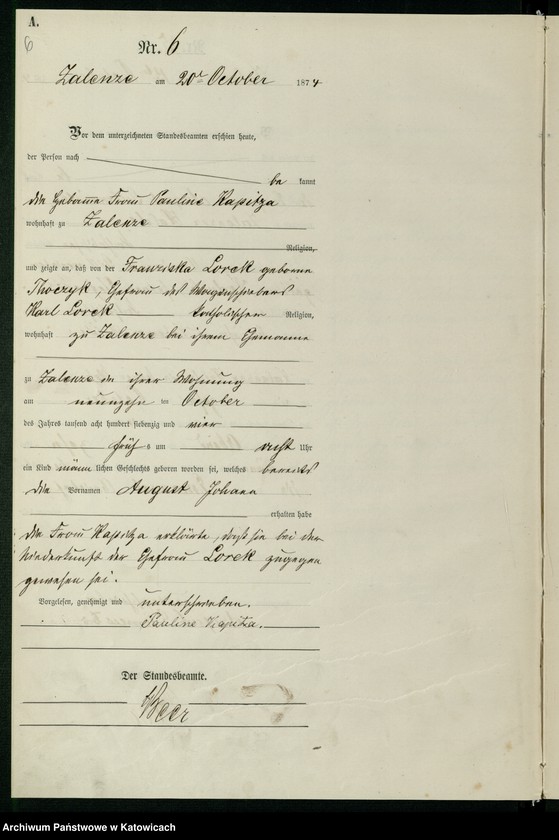 A.
6
Nr. 6
Zalenze am 20ten October 1874
Vor dem unterzeichneten Standesbeamten erschien heute,
der Person nach
be kannt
die Hebamme Frau Pauline Kapitza
wohnhaft zu Zalenze
Religion,
und zeigte an, daß von der Franziska Lorek geborne
Ehefrau des Wagenschiebers
Karl Lorek katholischer Religion,
wohnhaft zu Zalenze bei ihrem Ehemanne
zu Zalenze in ihrer Wohnung
am neunzehn ten October
des Jahres tausend acht hundert siebenzig und vier
früh s um acht Uhr
ein Kind männ lichen Geschlechts geboren worden sei, welches bereits
die Vornamen August Johann
erhalten habe
die Frau Kapitza erklärte, daß sie bei der
Niederkunft der Ehefrau Lorek zugegen
gewesen sei.
Vorgelesen, genehmigt und unterschrieben.
Pauline Kapitza.
Der Standesbeamte.
Archiwum Państwowe w Katowicach